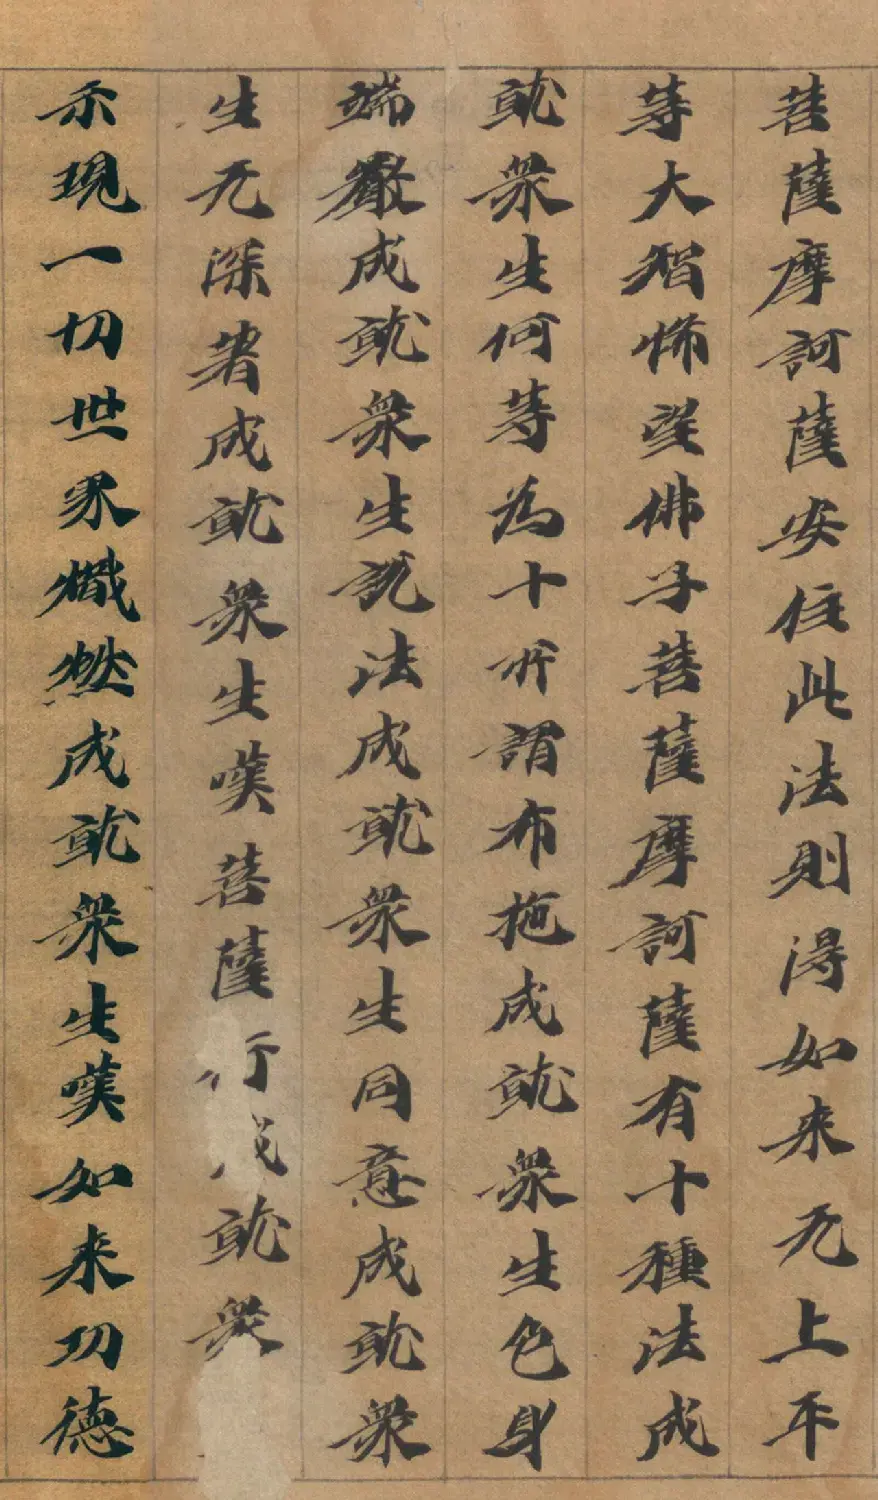 菩薩摩訶薩安住此法則得如来无上平
等大智悕望佛子菩薩摩訶薩有十種法成
就衆生何等為十所謂布施成就衆生色身
端嚴成就衆生説法成就衆生同意成就衆
生无深著成就衆生嘆菩薩行成就衆
示現一切世界熾燃成就衆生嘆如来功德